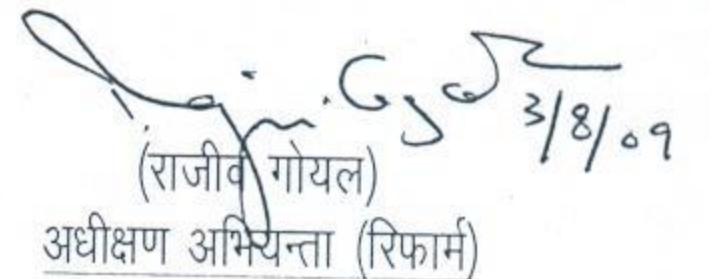 3/8/09
(राजीव गोयल)
अधीक्षण अभियन्ता (रिफार्म)